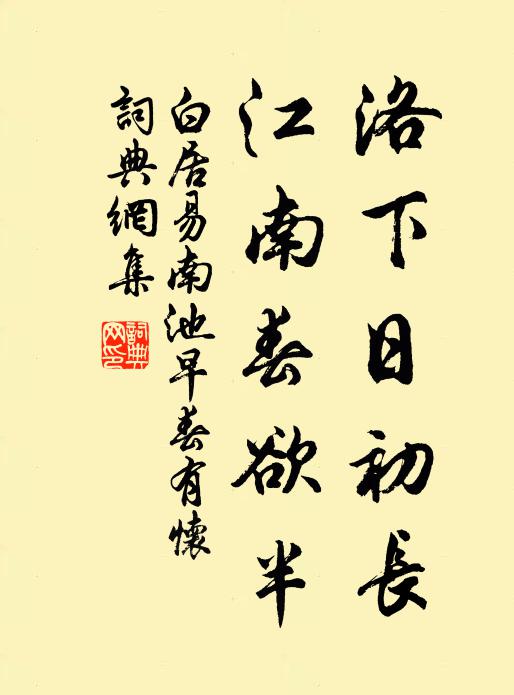 洛下日初長
江南春欲半
白居易南池早春有懷
詞典網集
詞典
网印